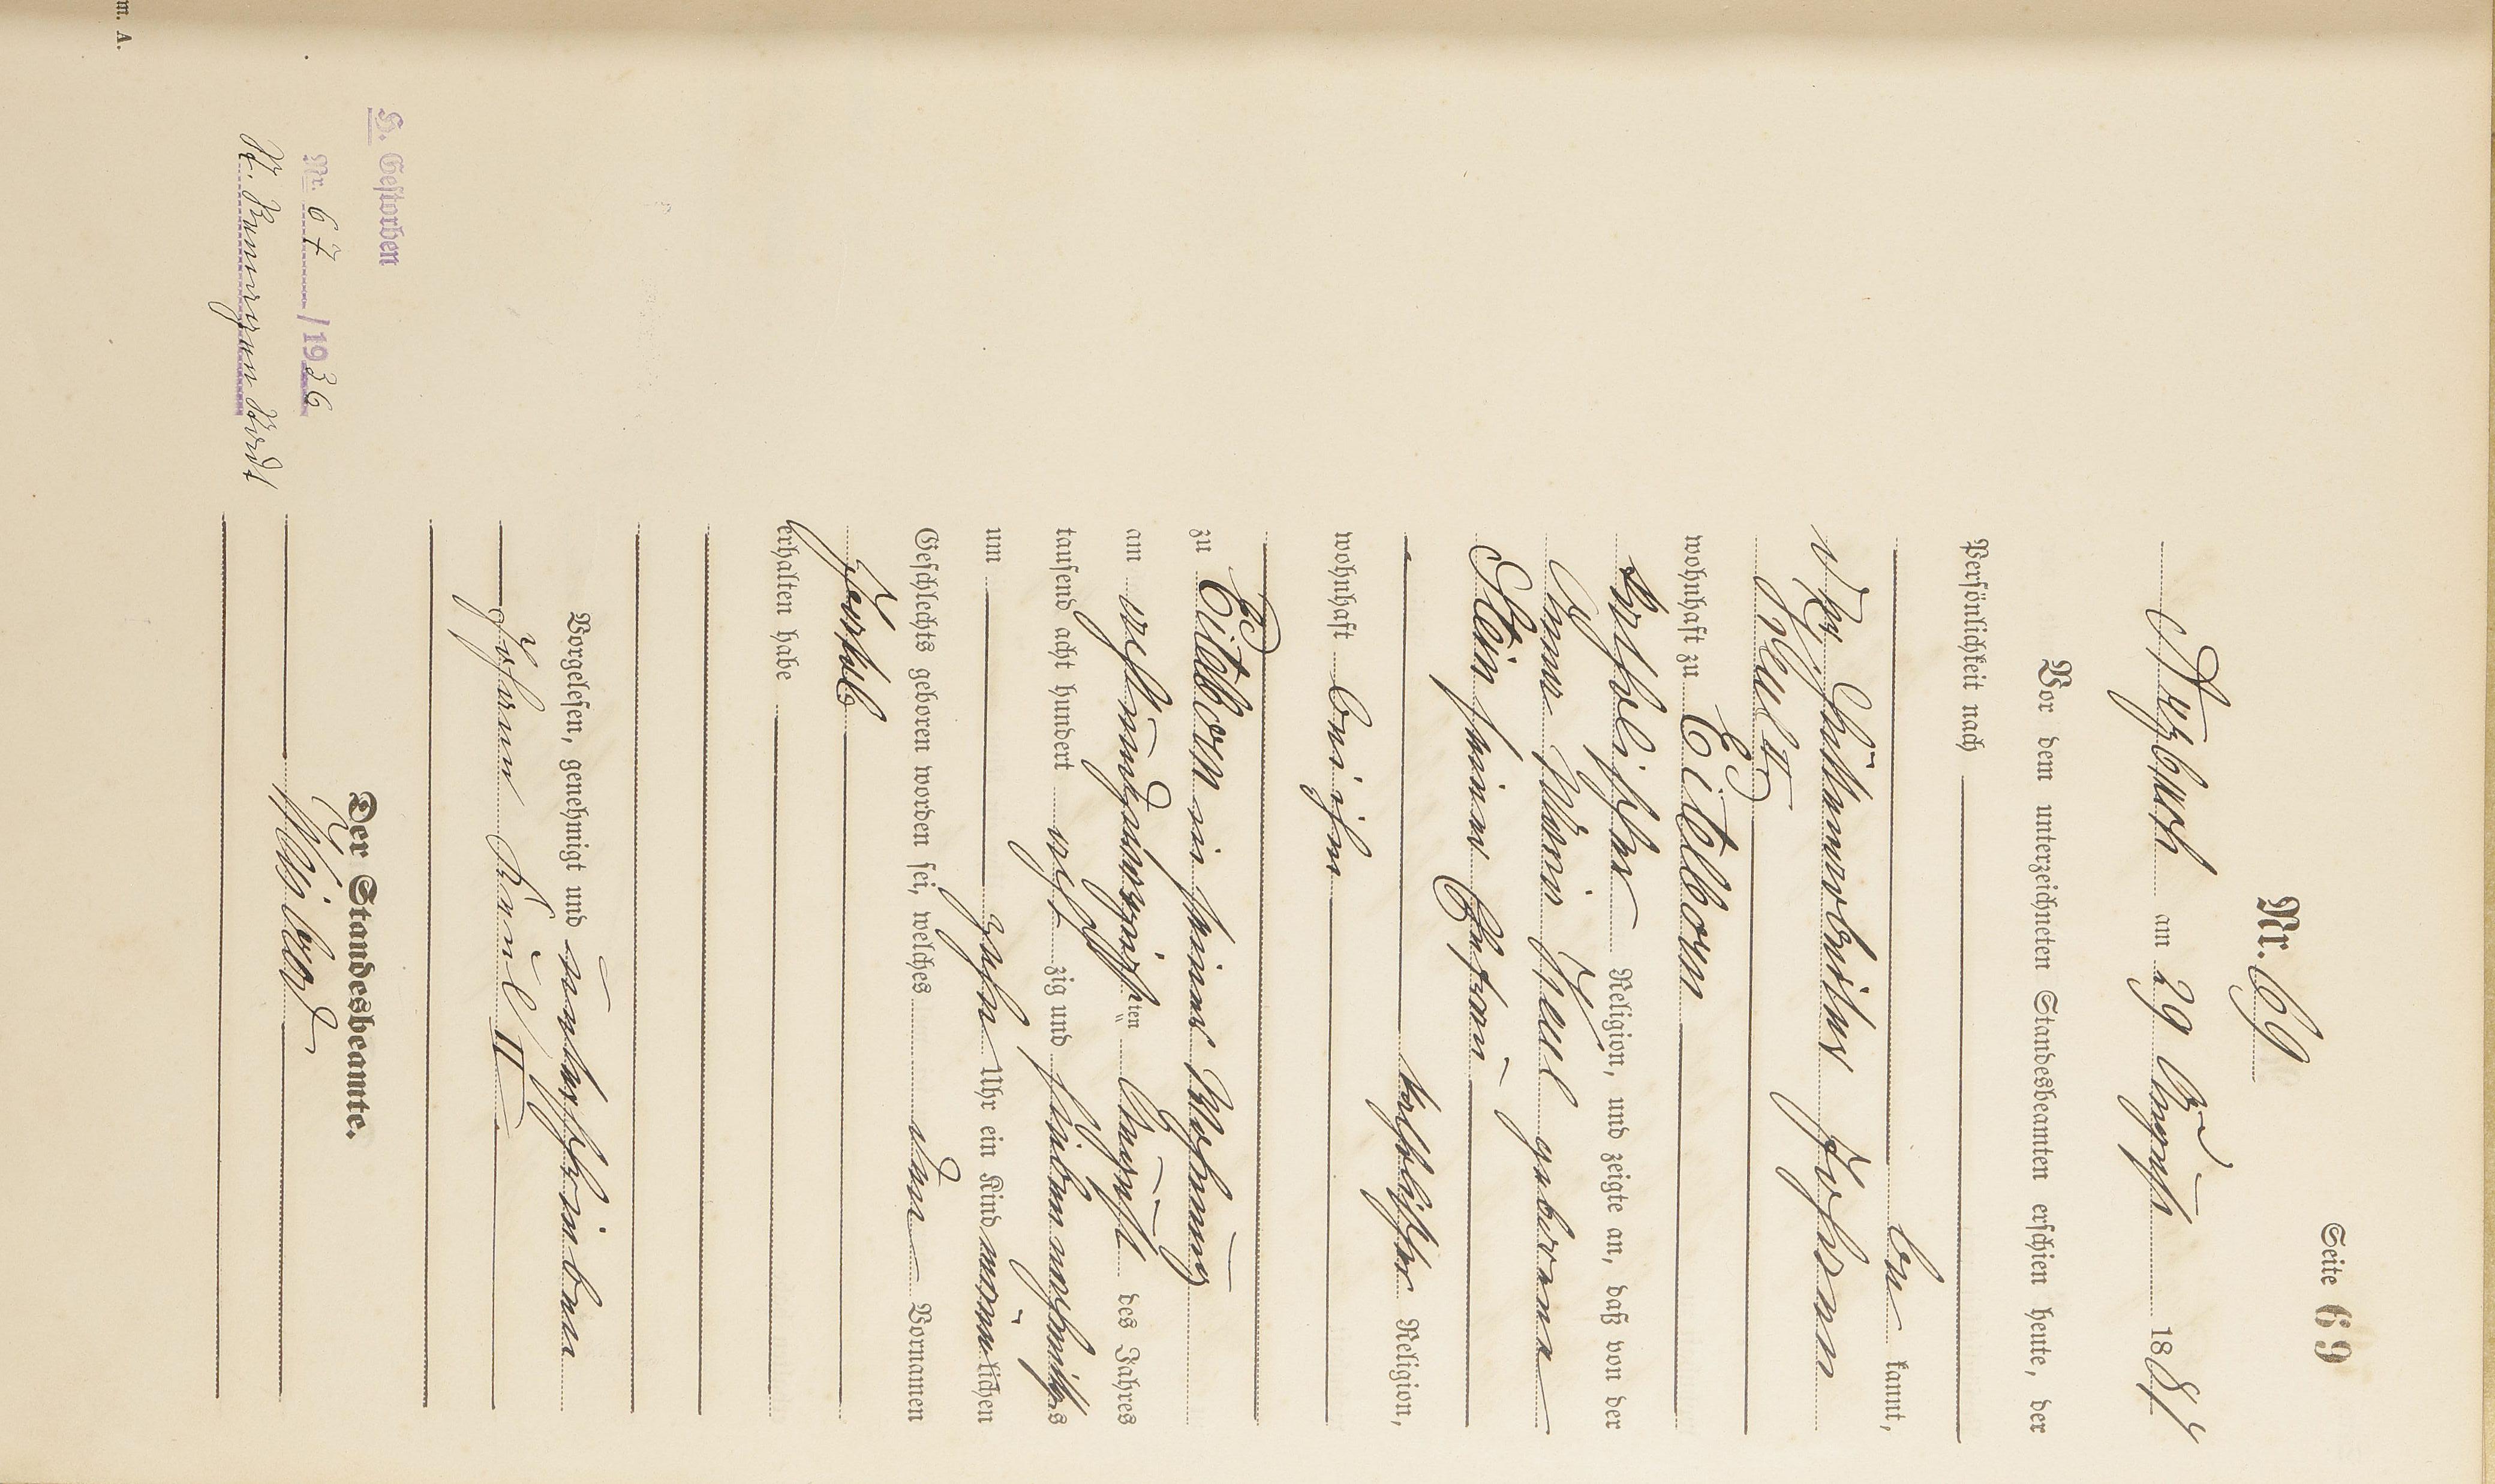 Seite 69
Nr. 69
Arzbach am 29 August 1887
Vor dem unterzeichneten Standesbeamten erschien heute, der
Persönlichkeit nach
be kannt,
der Hüttenarbeiter Johann
Keul II
wohnhaft zu Eitelborn
katholischer Religion, und zeigte an, daß von der
Anna Maria Keul geborene
Stein seiner Ehefrau
katholischer Religion,
wohnhaft bei ihm
zu Eitelborn in seiner Wohnung
am achtundzwanzigsten August des Jahres
tausend acht hundert acht zig und sieben nachmittags
um zehn Uhr ein Kind männlichen
Geschlechts geboren worden sei, welches den Vornamen
Jakob
erhalten habe
Vorgelesen, genehmigt und unterschrieben
Johann Keul II.
Der Standesbeamte.
H. Gestorben
Nr. 67 /1936
m. A.